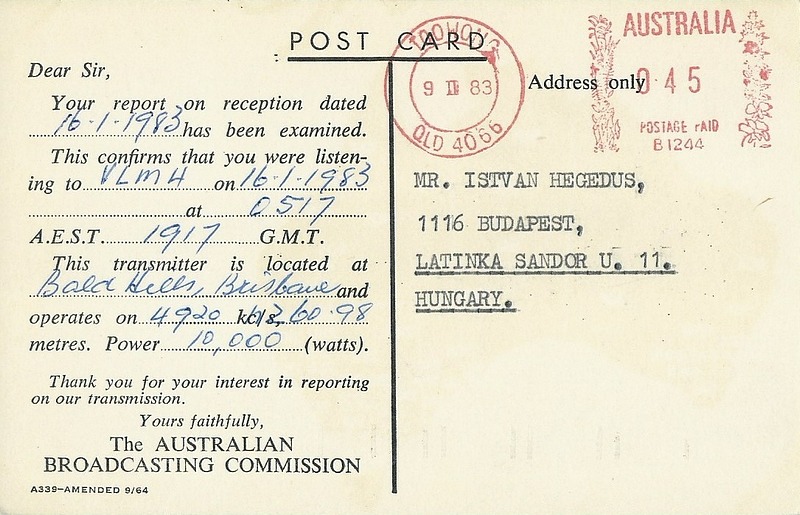 POST CARD
TOOWONG
9 II 83
QLD 4066
AUSTRALIA
045
POSTAGE PAID
B1244
Address only
Dear Sir,
Your report on reception dated
16-1-1983 has been examined.
This confirms that you were listen-
ing to VLM4 on 16-1-1983
at 0517
A.E.S.T. 1917 G.M.T.
This transmitter is located at
Bald Hills, Brisbane and
operates on 4920 kHz, 60.98
metres. Power 10,000 (watts).
Thank you for your interest in reporting
on our transmission.
Yours faithfully,
The AUSTRALIAN
BROADCASTING COMMISSION
A339—AMENDED 9/64
MR. ISTVAN HEGEDUS,
1116 BUDAPEST,
LATINKA SANDOR U. 11.
HUNGARY.